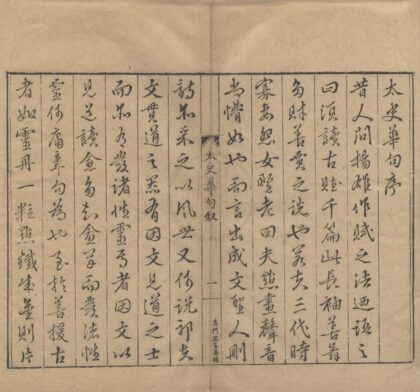 太史華句序
昔人問揚雄作賦之法迺語之
曰須讀古賦千篇此長袖善舞
多財善賈之說也若夫三代時
寡妻怨女野老田夫點畫聲音
尚懵如也而言出成文聖人刪
太史華句叙
一
詩亦采之以風世又何說邪夫
文貫道之器有因文見道之士
而亦有發諸性靈焉者因文以
見道讀愈多知愈而發諸性
靈何庸華句為也至於善援古
者如靈丹一粒點鐵成金則片